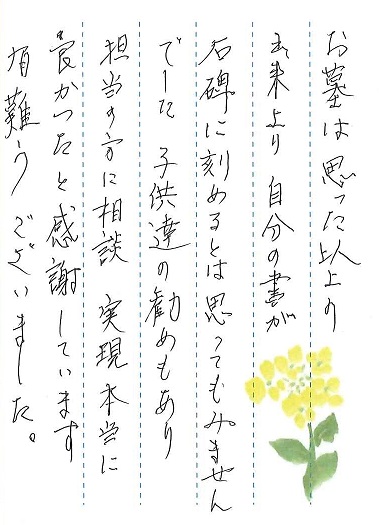 お墓は思った以上の
出来上り 自分の書が
石碑に刻めるとは思ってもみません
でした 子供達の勧めもあり
担当の方に相談 実現本当に
良かったと感謝しています
有難うございました。